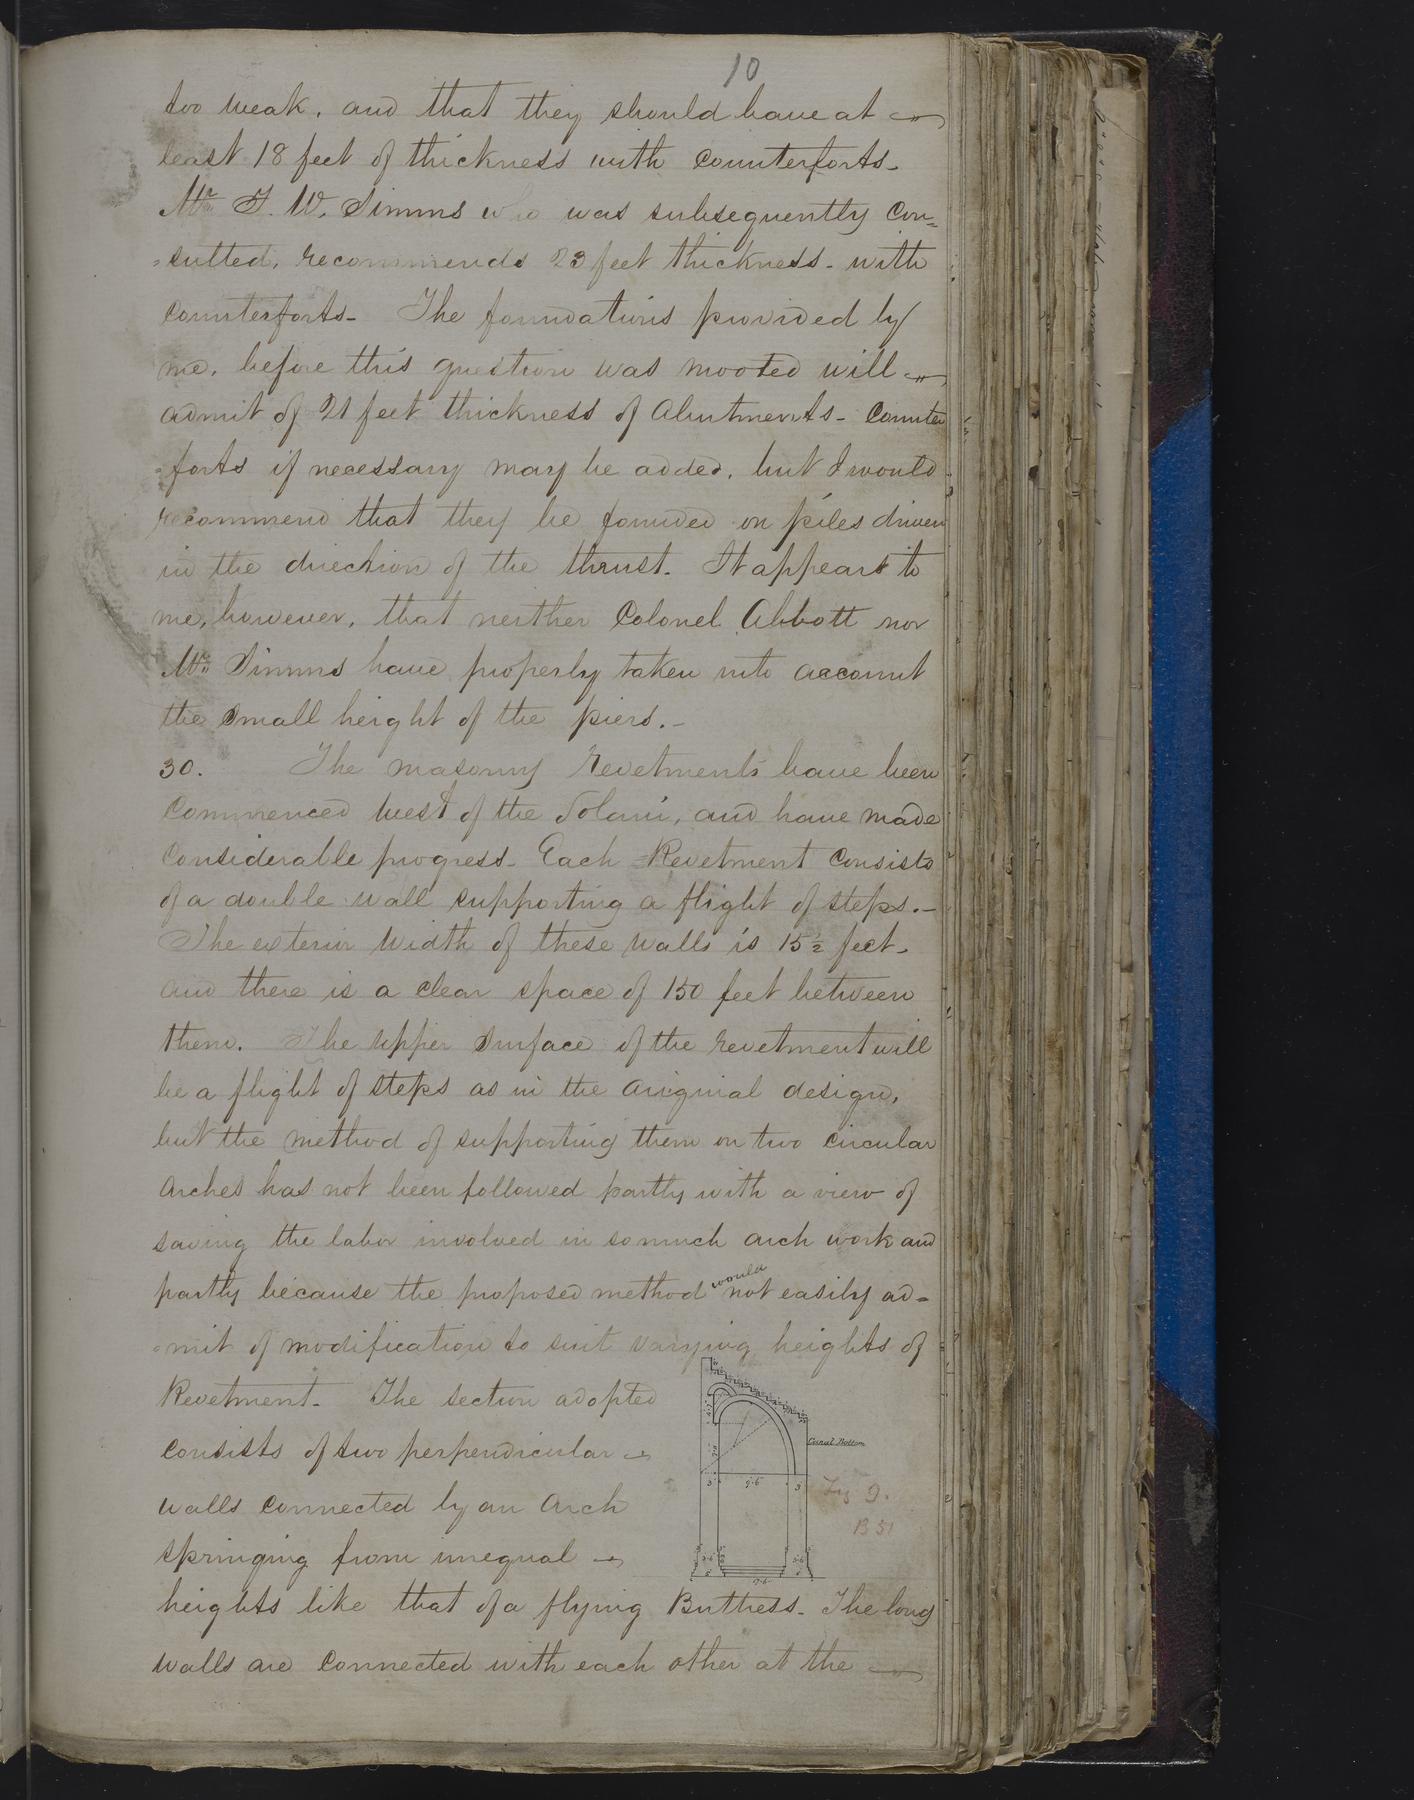 10
too weak, and that they should have at
least 18 feet of thickness with Counterforts-
Mr. F. W. Simms who was subsequently Con=
=sulted, recommends 23 feet thickness- with
Counterforts- The foundations provided by
me, before this question was mooted will
admit of 21 feet thickness of Abutments- Counter
=forts if necessary may be added, but I would
recommend that they be founded on piles driven
in the direction of the thrust. It appears to
me, however, that neither Colonel Abbott nor
Mr. Simms have properly taken into account
the small height of the piers.-
30. The masonry Revetments have been
Commenced West of the Solani, and have made
Considerable progress- Each Revetment Consists
of a double wall supporting a flight of steps.-
The exterior Width of these walls is 15½ feet-
and there is a clear space of 150 feet between
them. The Upper Surface of the revetment will
be a flight of steps as in the original design,
but the method of supporting them on two circular
Arches has not been followed partly with a view of
saving the labor involved in so much arch work and
partly because the proposed method would not easily ad=
=mit of modification to suit varying heights of
Revetment- The section adopted
consists of two perpendicular
walls connected by an Arch
springing from unequal
heights like that of a flying Buttress- The long
walls are Connected with each other at the
Canal Bottom
3
9.6
3
Fig 9.
B 51
9.6